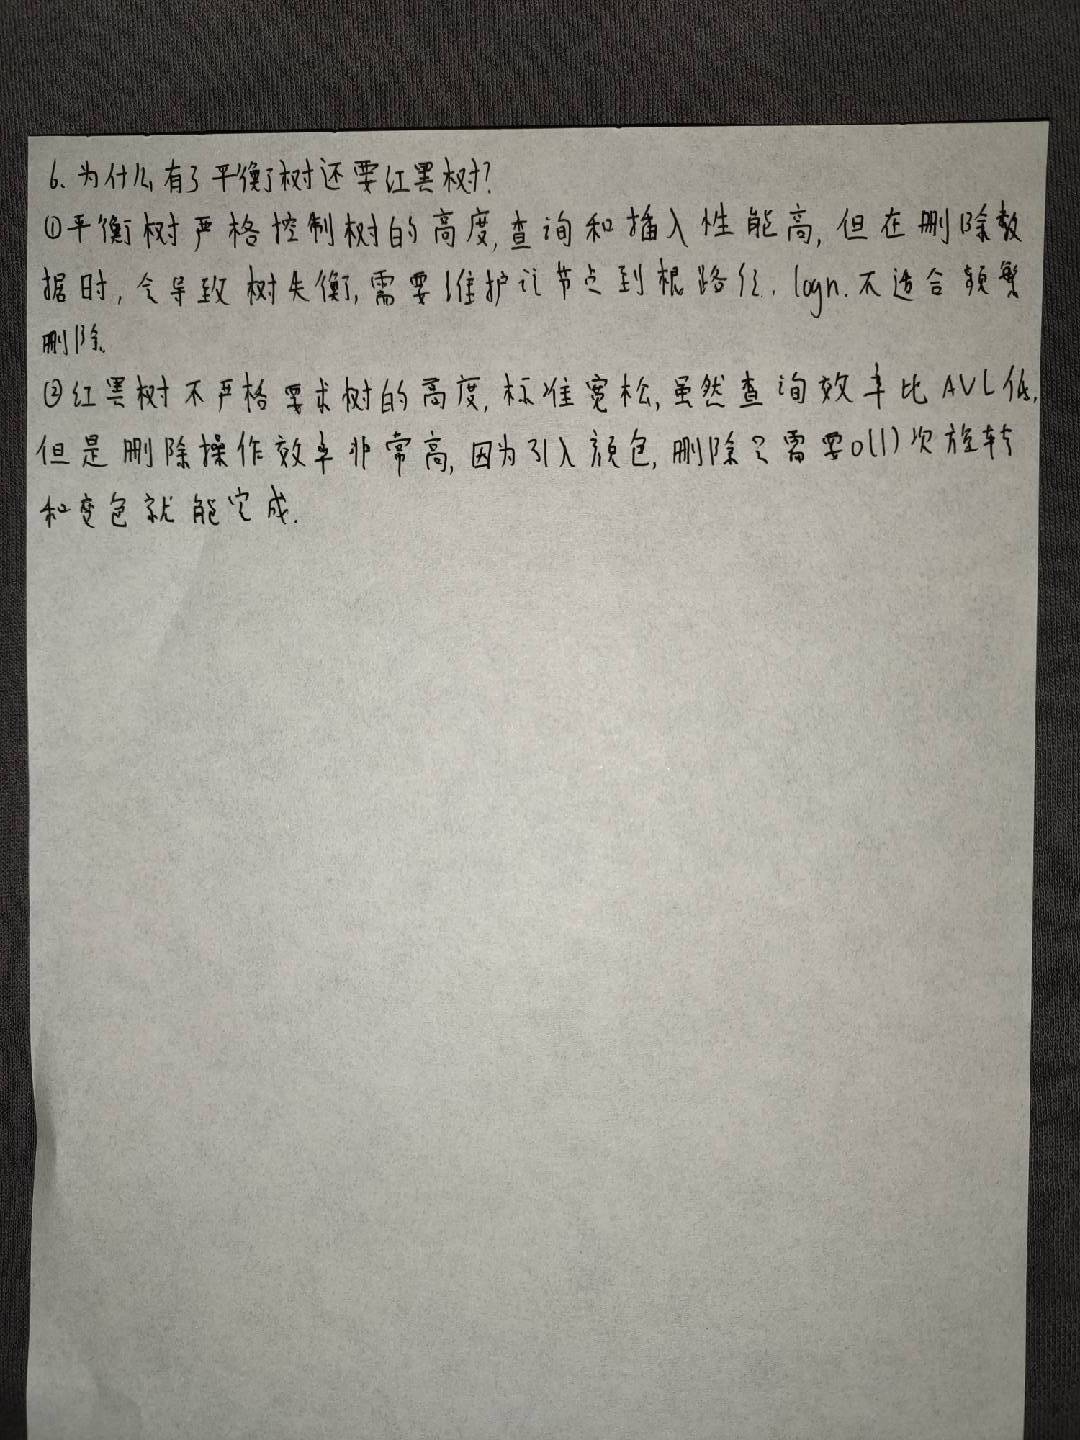 6、为什么有了平衡树还要红黑树?
①平衡树严格控制树的高度,查询和插入性能高,但在删除数
据时,会导致树失衡,需要维护让节点到根路径.logn.不适合频繁
删除.
②红黑树不严格要求树的高度,标准宽松,虽然查询效率比AVL低,
但是删除操作效率非常高,因为引入颜色,删除只需要o(1)次旋转
和变色就能完成.